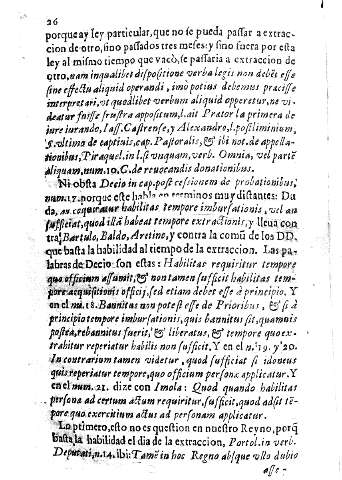 26
porque ay ley particular, que no se pueda passar a extrac-
cion de otro, sino passados tres meses: y sino fuera por esta
ley al mismo tiempo que vacò, se passaria a extraccion de
otro, nam in qualibet dispositione verba legis non debēt esse
sine effectu aliquid operandi, imo potius debemus præcise
interpretari, vt quodlibet verbum aliquid operetur, ne vi-
deatur fuisse frustra appositum, l. ait Prætor la primera de
iure iurando, l. ass. Castrense, y Alexandro, l. postliminium,
§. vltimo de captiuis, cap. Pastoralis, & ibi not. de appella-
tionibus, Tiraquel. in l. si vnquam, verb. Omnia, vel partē
aliquam, num. 10. C. de reuocandis donationibus.
Ni obsta Decio in cap. post cessionem de probationibus,
num. 17. porque este habla en terminos muy distantes: Du
da, an requiratur habilitas tempore imbursationis, vel an
sufficiat, quod illā habeat tempore extractionis, y lleua con
tra, Bartulo, Baldo, Aretino, y contra la comū de los DD.
que basta la habilidad al tiempo de la extraccion. Las pa-
labras de Decio son estas: Habilitas requiritur tempore
quo officium assumit, & non tamen sufficit habilitas tem-
pore acquisitionis officij, sed etiam debet esse à principio. Y
en el nu. 18. Bannitus non potest esse de Prioribus, & si à
principio tempore imbursationis, quis bannitus sit, quamuis
postea, rebannitus fuerit, & liberatus, & tempore quo ex-
trahitur reperiatur habilis non sufficit, Y en el n. 19. y 20.
In contrarium tamen videtur, quod sufficiat si idoneus
quis reperiatur tempore, quo officium personæ applicatur. Y
en el num. 21. dize con Imola: Quod quando habilitas
persona ad certum actum requiritur, sufficit, quod adsit tē-
pore quo exercitium actus ad personam applicatur.
Lo primero, esto no es question en nuestro Reyno, porq̄
basta la habilidad el dia de la extraccion, Portol. in verb.
Deputati, n. 14. ibi: Tamē in hoc Regno absque vllo dubio
asse-